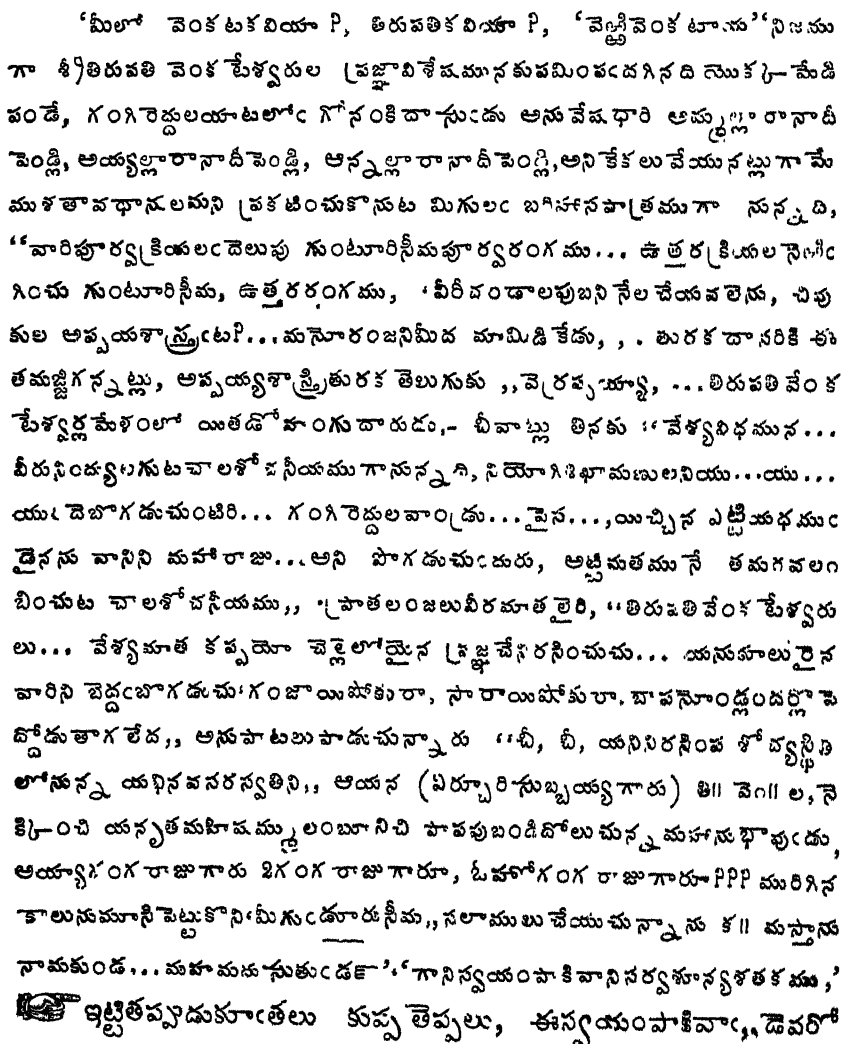 ‘మీలో వెంకటకవియా ?, తిరుపతికవియా ?, ‘వెఱ్ఱివెంకటాయ’ ‘నిజము
గా శ్రీతిరుపతి వెంకటేశ్వరుల ప్రజ్ఞావిశేషమునకుపమింపఁదగినది యొక్క మేడి
పండే, గంగిరెద్దులయాటలోఁ గోనంకిదాసుఁడు అనువేషధారి అమ్మల్లారానాదీ
పెండ్లి, అయ్యల్లారానాదీపెండ్లి, అన్నల్లారానాదీపెండ్లి, అని కేకలువేయునట్లుగా మే
ముశతావధానులమని ప్రకటించుకొనుట మిగులఁ బరిహాసపాత్రముగా నున్నది,
‘‘వారిపూర్వక్రియలఁదెలుపు గుంటూరిసీమపూర్వరంగము... ఉత్తరక్రియల నెఱిఁ
గించు గుంటూరిసీమ, ఉత్తరరంగము, ‘వీరీదండాలపుబని నేల చేయవలెను, చివు
కుల అప్పయశాస్త్రఁట?...మనోరంజనిమీద మామిడికేడు, , . తురకదాసరికి ఈ
తమజ్జిగన్నట్లు, అప్పయ్యశాస్త్రితురక తెలుగుకు ,, వెర్రప్పయ్యా, ...తిరుపతి వేంక
టేశ్వర్లమేళంలో యితడోహంగుదారుడు,- చీవాట్లు తినకు ‘‘వేశ్యవిధమున...
వీరునింద్యులగుటచాలశోచనీయముగానున్నది, నియోగిశిఖామణులనియు...యు...
యుఁ దెబొగడుచుంటిరి... గంగిరెద్దులవాండ్రు...పైస...,యిచ్చిన ఎట్టియధముఁ
డైనను వానిని మహారాజు...అని పొగడుచుఁదురు, అట్టిమతమునే తమరవలం
బించుట చాలశోచనీయము,, ‘ప్రాతలంజలువీరమాతలైరి, ‘‘తిరుపతివేంకటేశ్వరు
లు... వేశ్యమాత కప్పయో చెల్లెలోయైన ప్రజ్ఞచేనిరసించుచు... యనుకూలురైన
వారిని బెద్దఁబొగడుచు‘గంజాయిషోకురా, సారాయిషోకురా, బాపనోండ్లందర్లో పె
ద్దోడుతాగలేద,, అనుపాటలుపాడుచున్నారు ‘‘చీ, చీ, యనినిరసింప శోచ్యస్థితి
లోనున్న యభినవసరస్వతిని,, ఆయన (ఏర్చూరిసుబ్బయ్యగారు) తి॥ వెం॥ ల, నె
క్కించి యనృతమహిషమ్ములంబూనిచి పాపపుబండిదోలుచున్నమహానుభావుఁడు,
అయ్యాగంగరాజుగారు ఏగంగరాజుగారూ, ఓహోగంగరాజుగారూ??? మురిగిన
కాలునుమూసిపెట్టుకొని‘మీగుఁడూరుసీమ,, సలాములు చేయుచున్నాను క॥ మస్తాను
నామకుండ...మహమదుసుతుఁడ’‘‘గానిస్వయంపాకివానిసర్వశూన్యశతకము,’
☞ ఇట్టితప్పుడుకూఁతలు కుప్ప తెప్పలు, ఈస్వయంపాకివాఁ,, డెవరో